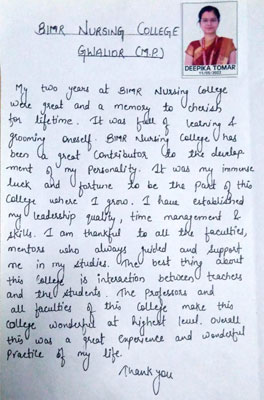 BIMR NURSING COLLEGE
GWALIOR (M.P.)
DEEPIKA TOMAR
11/05/2022
My two years at BIMR Nursing College
were great and a memory to cherish
for lifetime. It was full of learning &
grooming oneself. BIMR Nursing College has
been a great contributor to the develop
ment of my Personality. It was my immense
luck and fortune to be the part of this
College where I grow. I have established
my leadership quality, time management &
skills. I am thankful to all the faculties,
mentors who always guided and support
me in my studies. The best thing about
this College is interaction between teachers
and the students. The Professors and
all faculties of this College make this
College wonderful at highest level. Overall
this was a great experience and wonderful
Practice of my life.
Thank you